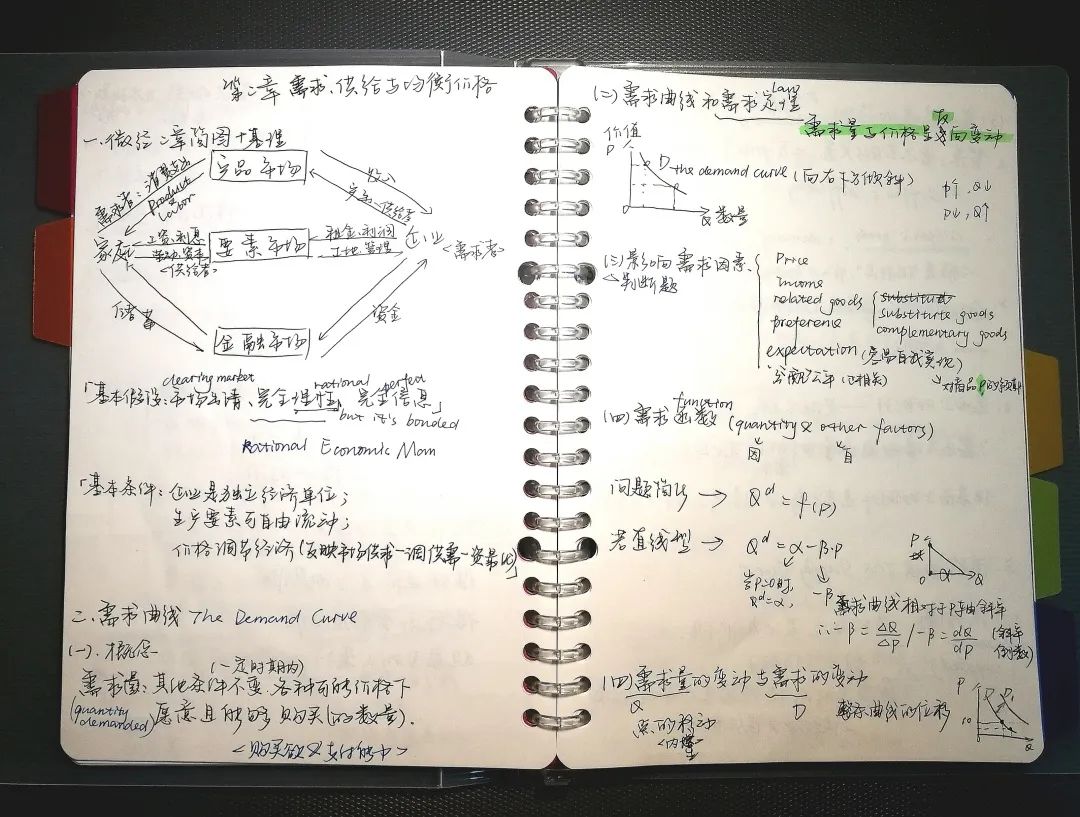 第二章 需求、供给与均衡价格
一、微经二章简图+基理
产品市场
需求者：消费支出
Product
Labor
供给者
家庭
工资、利息
劳动、资本
<供给者>
要素市场
租金、利润
土地、管理
企业
<需求者>
储蓄
资金
金融市场
clearing market rational perfect
「基本假设：市场出清、完全理性、完全信息」
but it's bonded
Rational Economic Man
「基本条件：企业是独立经济单位；
生产要素可自由流动；
价格调节经济(反映市场供求—调供需—资最优)」
二、需求曲线 The Demand Curve
(一)、概念 (一定时期内)
需求量：其他条件不变，各种可能价格下
(quantity demanded) 愿意且能够购买(的数量).
<购买欲&支付能力>
(二)需求曲线和需求定理 law
需求量与价格呈反向变动
价值
P
D the demand curve (向右下方倾斜)
Q 数量
P↑, Q↓
P↓, Q↑
(三)影响需求因素
△判断题
Price
income
related goods
substitute goods
complementary goods
preference
expectation (容易自我实现)
↘对商品P的预期
function
(四)需求函数 (quantity & other factors)
因 自
问题简化 → Qᵈ = f(P)
若直线型 → Qᵈ = α - β·P
当P=0时, Qᵈ=α,
-β 需求曲线相对于P轴斜率
∴ -β = ΔQ/ΔP / -β = dQ/dP (斜率倒数)
P
O α Q
(四)需求量的变动与需求的变动
Q D
点的移动 曲线的位移
P
D D₁
10
Q